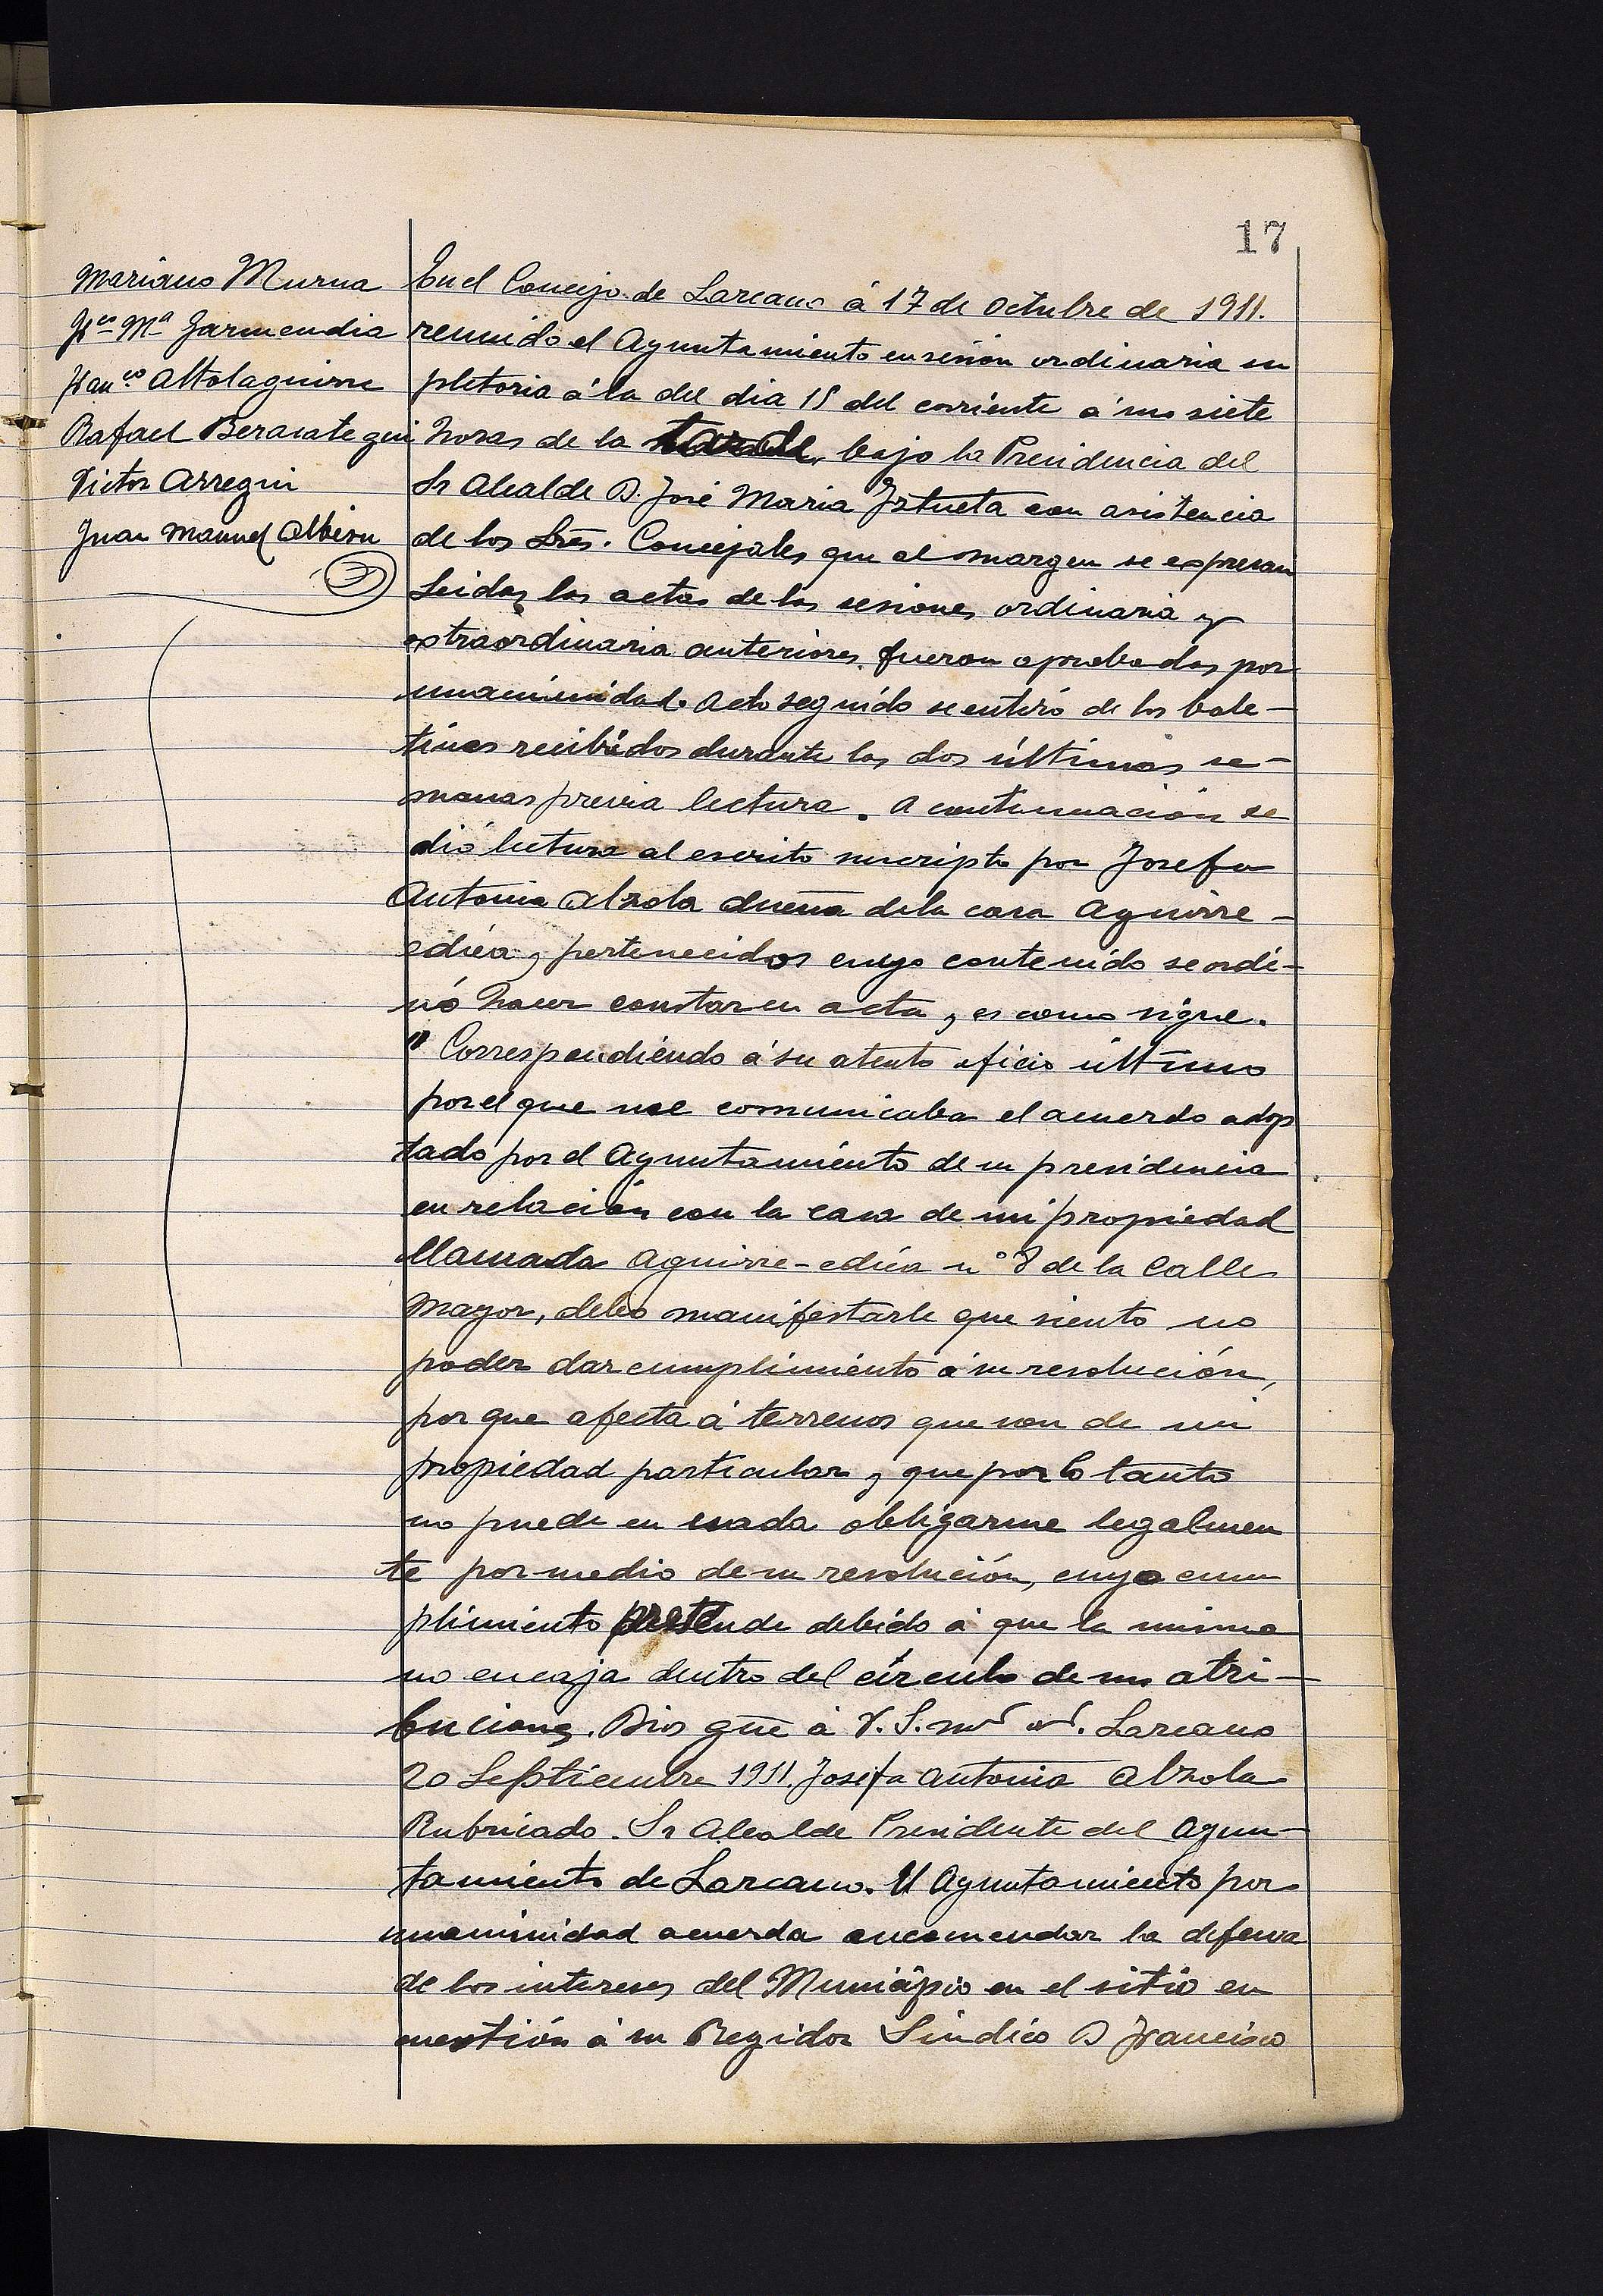 17
Mariano Murua
Fr.co Mª Garmendia
Fran.co Altolaguirre
Rafael Berasategui
Victor Arregui
Juan Manuel Albisu
En el Concejo de Lazcano á 17 de Octubre de 1911.
reunido el Ayuntamiento en sesión ordinaria su
pletoria á la del dia 15 del corriente á sus siete
horas de la tarde, bajo la Presidencia del
Sr Alcalde D. José Maria Iztueta con asistencia
de los Sres. Concejales que al margen se expresan
Leidas las actas de las sesiones ordinaria y
extraordinaria anteriores, fueron aprobadas por
unanimidad. Acto seguido se enteró de los bole-
tines recibidos durante las dos últimas se-
manas previa lectura. A continuación se
dió lectura al escrito suscripto por Josefa
Antonia Alzola dueña de la casa Aguirre-
echea y pertenecidos cuyo contenido se orde-
nó hacer constar en acta y es como sigue.
" Correspondiendo á su atento oficio último
por el que me comunicaba el acuerdo adop
tado por el Ayuntamiento de su presidencia
en relación con la casa de mi propiedad
llamada Aguirre-echea nº 8 de la Calle
Mayor, debo manifestarle que siento no
poder dar cumplimiento á su resolución,
por que afecta á terrenos que son de mi
propiedad particular y que por lo tanto
no puede en nada obligarme legalmen
te por medio de su resolución, cuyo cum
plimiento pretende debido á que la misma
no encaja dentro del círculo de sus atri-
buciones. Dios gue á V.S. ms as. Lazcano
20 Septiembre 1911. Josefa Antonia Alzola
Rubricado. Sr Alcalde Presidente del Ayun-
tamiento de Lazcano. El Ayuntamiento por
unanimidad acuerda encomendar la defensa
de los intereses del Municipio en el sitio en
cuestión á su Regidor Sindico D Francisco